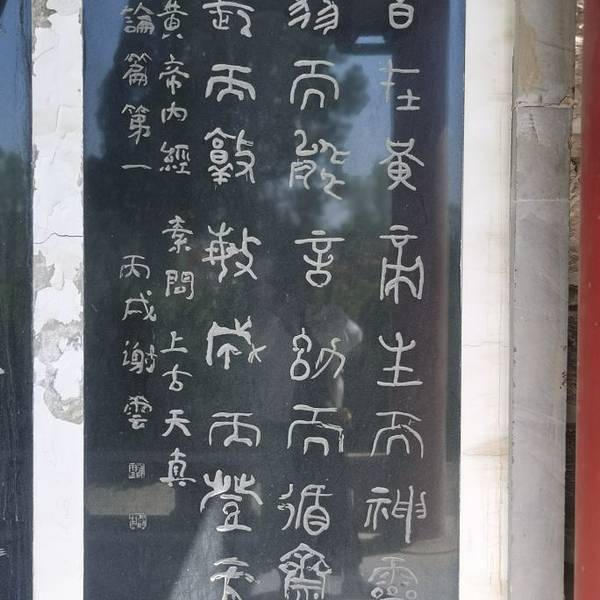 昔在黃帝生而神靈
弱而能言幼而循齊
長而敦敏成而登天
黃帝內經 素問 上古天真
論篇第一 丙戌謝雲